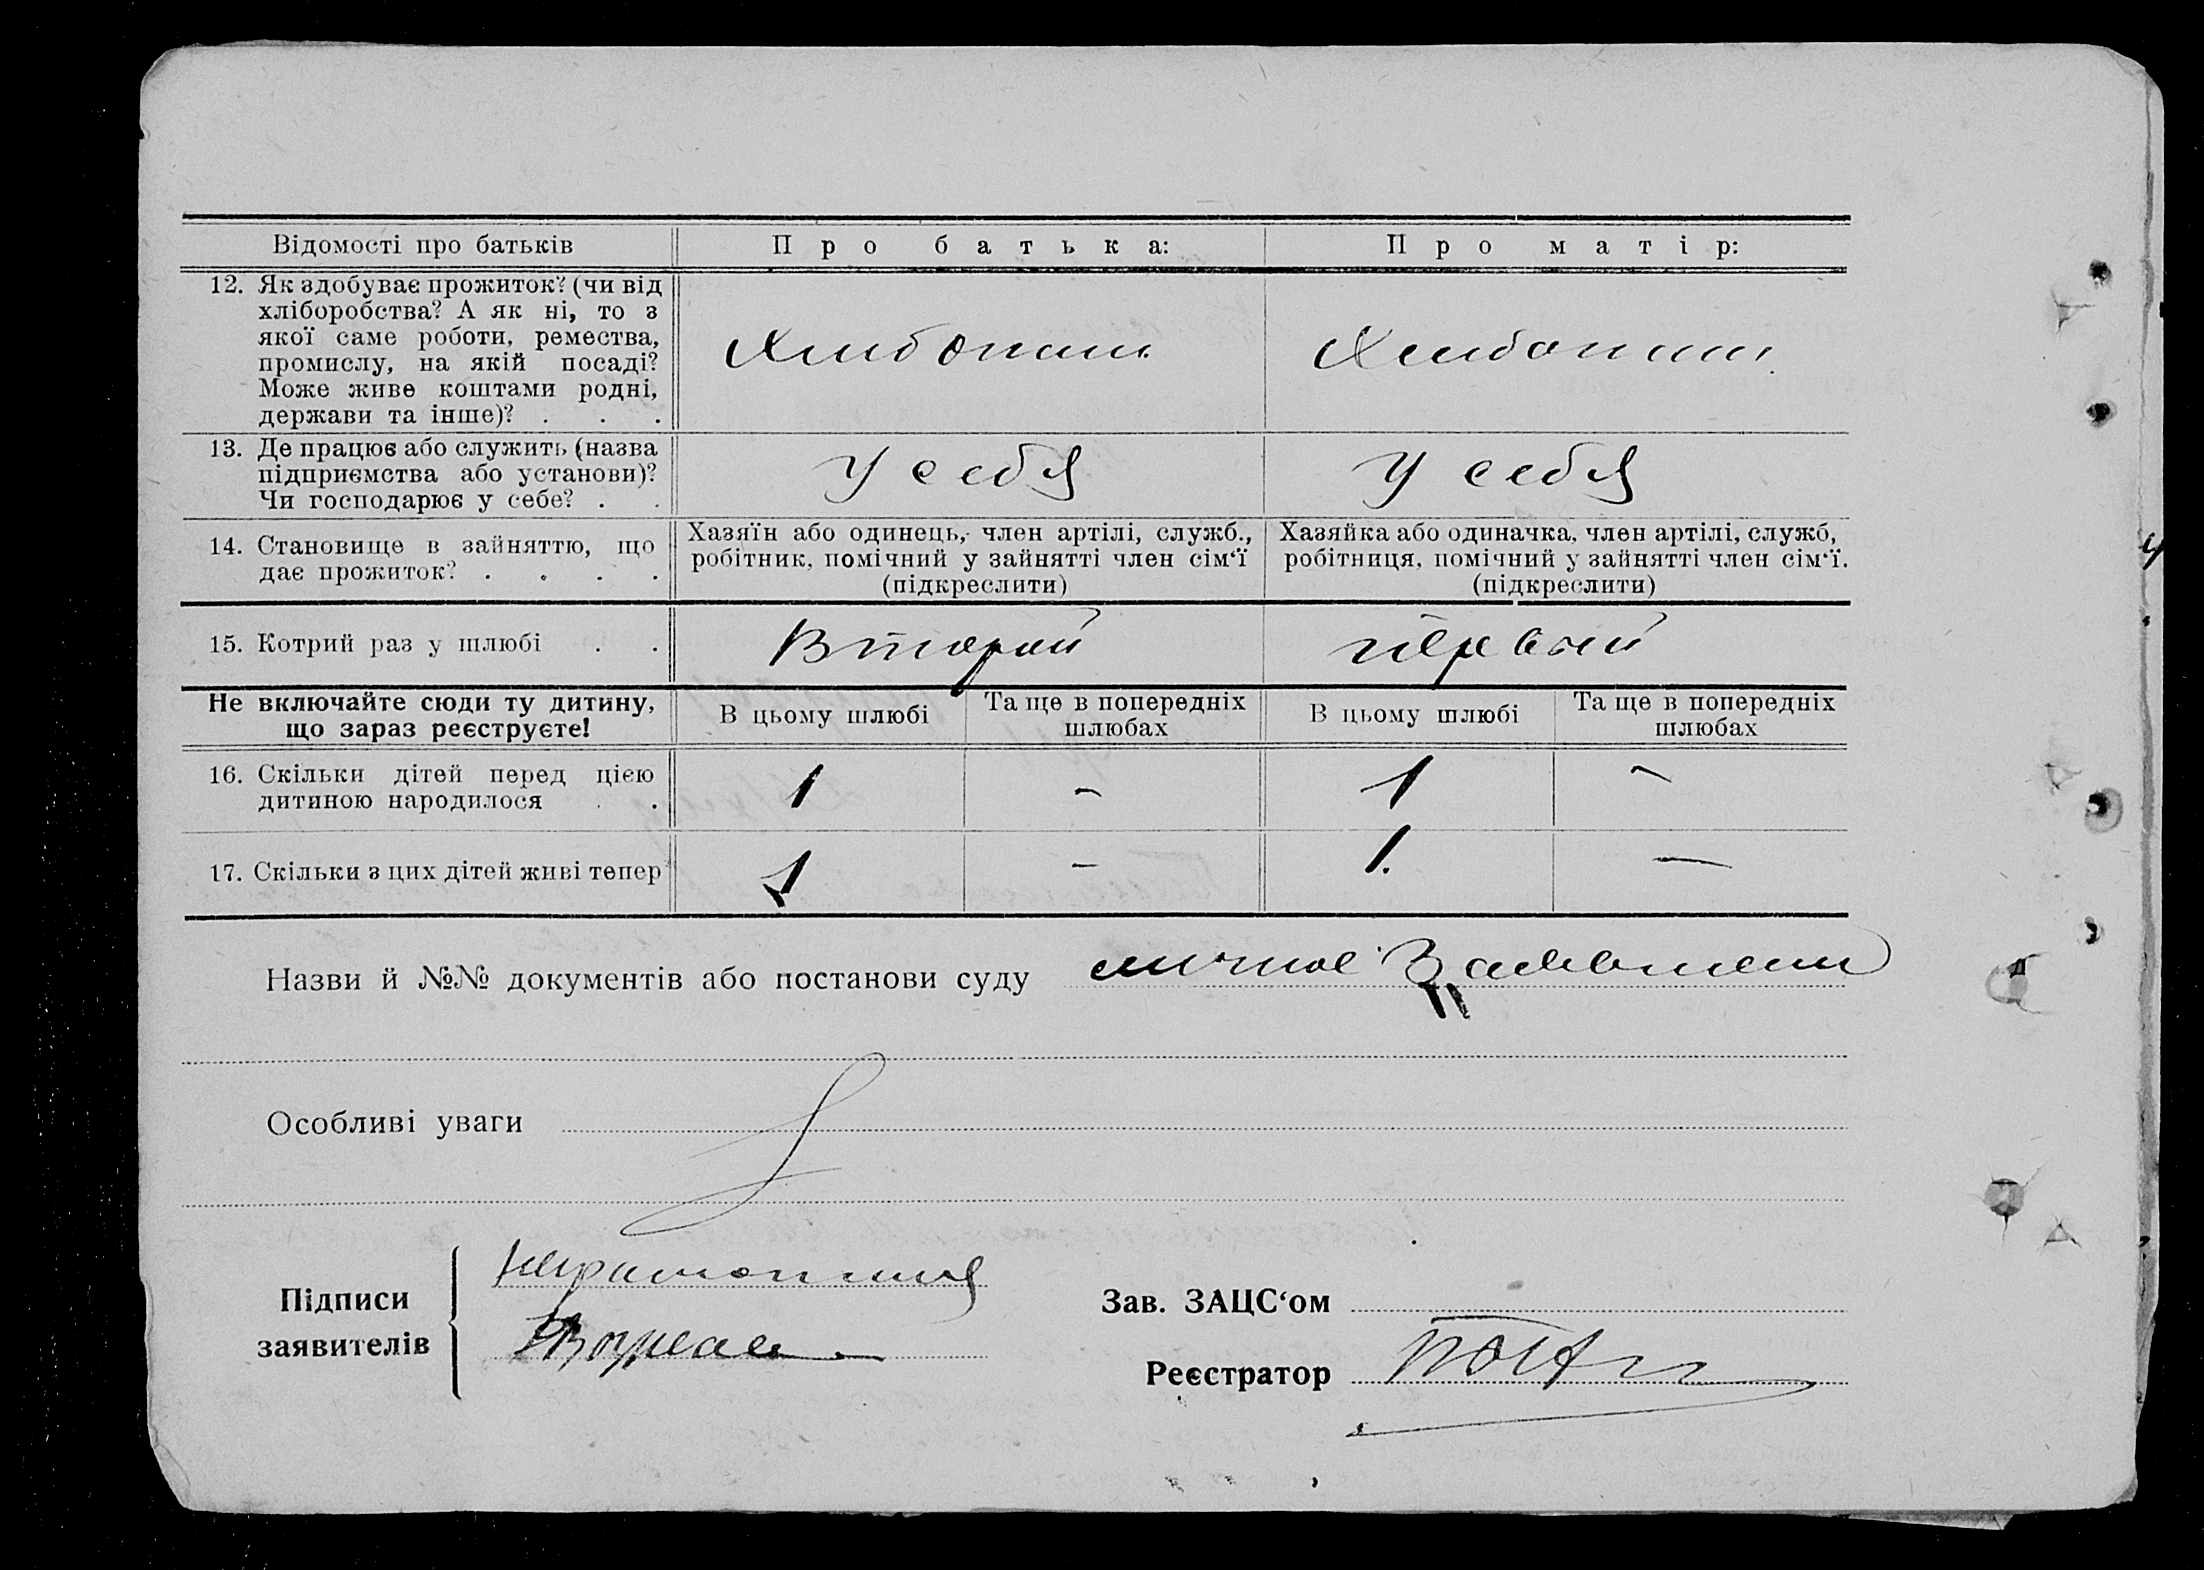 Відомості про батьків
Про батька:
Про матір:
12. Як здобуває прожиток? (чи від
хліборобства? А як ні, то з
якої саме роботи, ремества,
промислу, на якій посаді?
Може живе коштами родні,
держави та інше)? . . .
Хлибопаш.
Хлибопаш.
13. Де працює або служить (назва
підприємства або установи)?
Чи господарює у себе? . .
У себя
У себя
14. Становище в зайняттю, що
дає прожиток? . . . .
Хазяїн або одинець, член артілі, служб.,
робітник, помічний у зайнятті член сім‘ї
(підкреслити)
Хазяйка або одиначка, член артілі, служб,
робітниця, помічний у зайнятті член сім‘ї.
(підкреслити)
15. Котрий раз у шлюбі . .
Вторый
первый
Не включайте сюди ту дитину,
що зараз реєструєте!
В цьому шлюбі
Та ще в попередніх
шлюбах
В цьому шлюбі
Та ще в попередніх
шлюбах
16. Скільки дітей перед цією
дитиною народилося . .
1
-
1
-
17. Скільки з цих дітей живі тепер
1
-
1.
-
Назви й №№ документів або постанови суду личное
Особливі уваги
Підписи
заявителів
Зав. ЗАЦС‘ом
Реєстратор